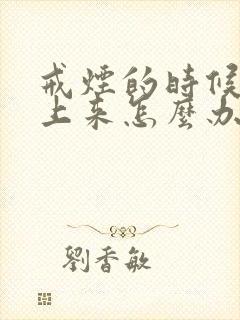 戒煙的時候
上來怎麼办
劉香敏